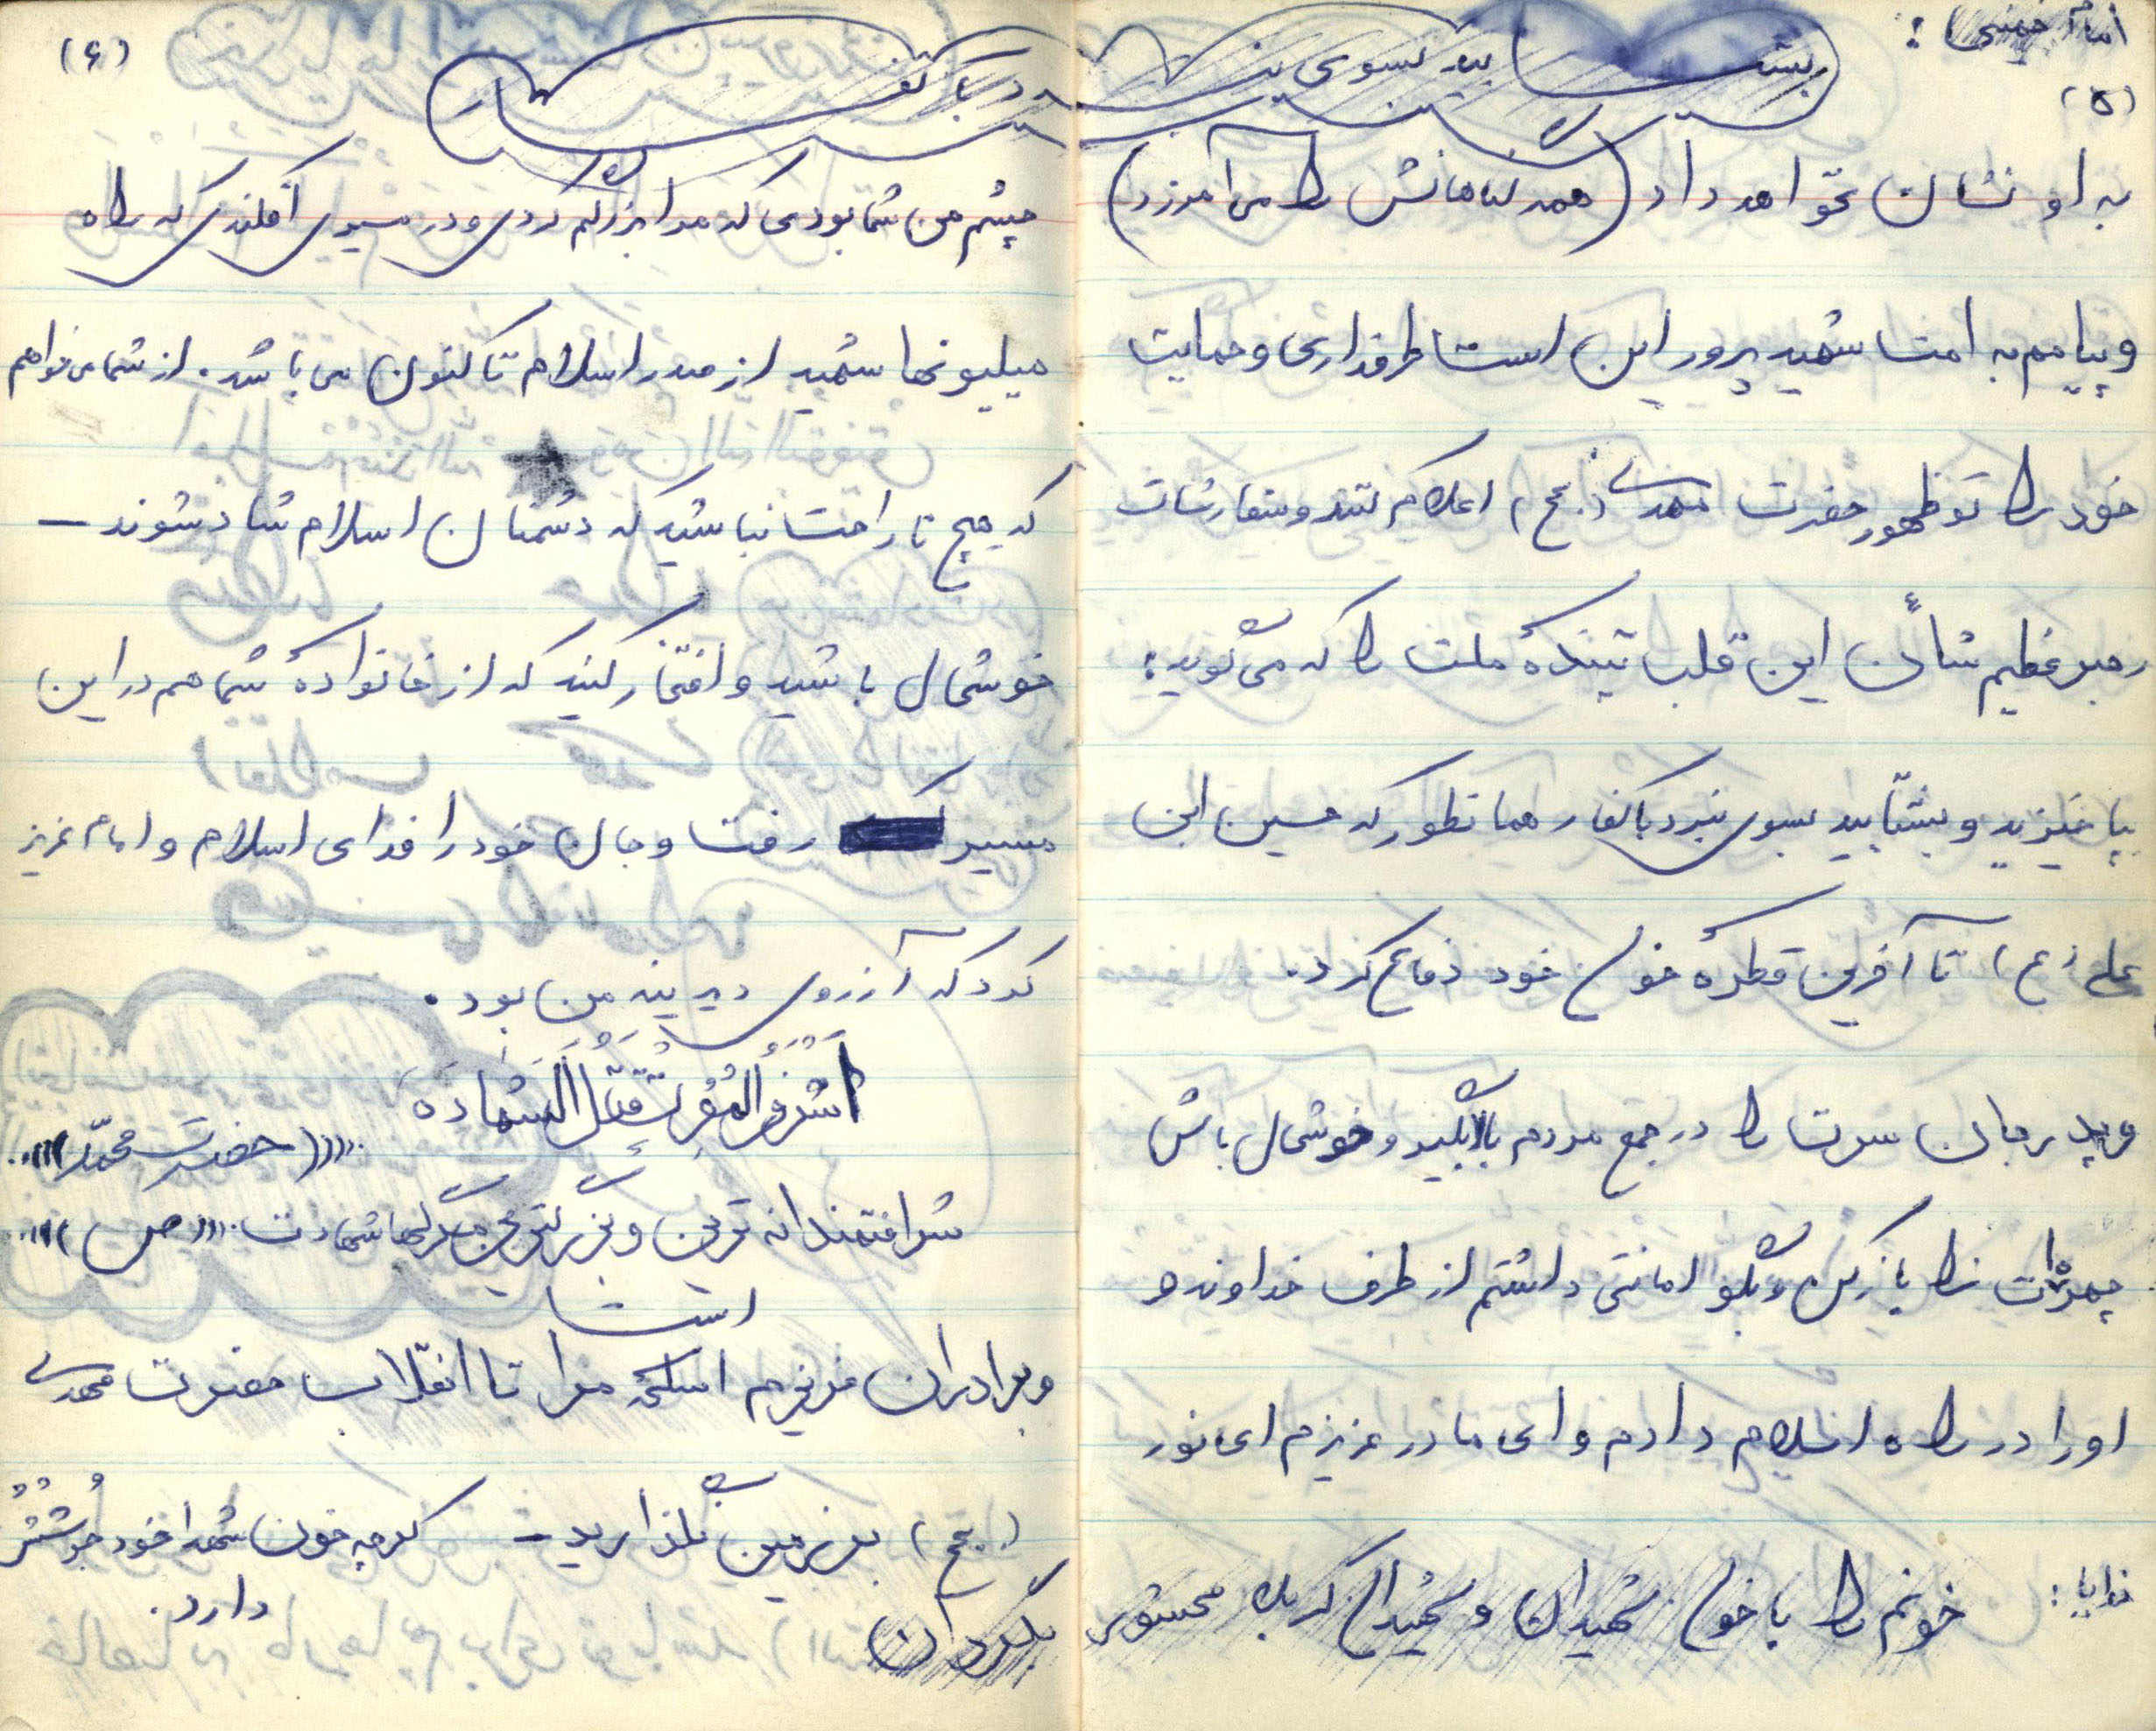 امام خمینی :
بشتابید بسوی نبرد با کفر
(۵)
به او نشان نخواهد داد (همه گناهانش را می آمرزد)
و پیامم به امت شهید پرور این است طرفداری و حمایت
خود را تو ظهور حضرت مهدی (عج) اعلام کنند و سفارشات
رهبر عظیم شأن این قلب تپندهٔ ملت را که می گوید :
بپا خیزید و بشتابید بسوی نبرد با کفار همانطور که حسین ابن
علی (ع) تا آخرین قطرهٔ خون خود دفاع کرد.
و پدر جان سرت را در جمع مردم بالا بگیر و خوشحال باش
چهره ات را باز کن و بگو امانتی داشتم از طرف خداوند و
او را در راه اسلام دادم و ای مادر عزیزم ای نور
خدایا : خونم را با خون شهیدان و شهیدان کربلا محشور بگردان
(۶)
چشم من شما بودی که مرا بزرگم کردی و در مسیری افکندی که راه
میلیونها شهید از صدر اسلام تا کنون می باشد. از شما می خواهم
که هیچ ناراحت نباشید که دشمنان اسلام شاد شوند –
خوشحال باشید و افتخار کنید که از خانوادهٔ شما هم در این
مسیر رفت و جان خود را فدای اسلام و امام عزیز
کرد که آرزوی دیرینه من بود.
اَشْرَفُ الْمُوْتِ قَتْلُ الْشَهادَه
((((حضرت محمّد))))
شرافتمندانه ترین و بزرگترین مرگها شهادت ((((ص))))
است
و برادران عزیزم اسلحهٔ مرا تا انقلاب حضرت مهدی
(عج) به زمین نگذارید – گرچه خون شهدا خود جوشش
دارد.